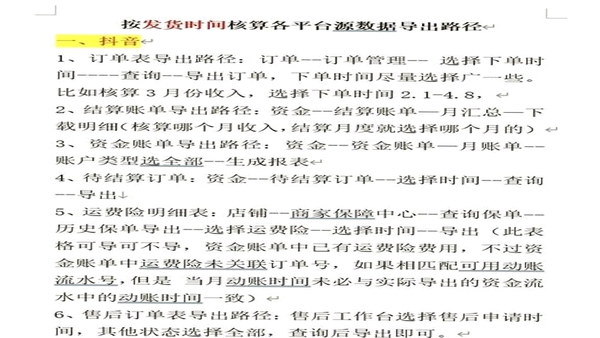 按发货时间核算各平台源数据导出路径
一、抖音
1、订单表导出路径：订单--订单管理-- 选择下单时
间----查询--导出订单，下单时间尽量选择广一些。
比如核算3月份收入，选择下单时间 2.1-4.8，
2、结算账单导出路径：资金--结算账单—月汇总—下
载明细(核算哪个月收入,结算月度就选择哪个月的）
3、资金账单导出路径：资金--资金账单—月账单--
--账户类型选全部--生成报表
4、待结算订单：资金--待结算订单--选择时间--查询
--导出
5、运费险明细表：店铺--商家保障中心--查询保单--
历史保单导出--选择运费险--选择时间--导出（此表
格可导可不导，资金账单中已有运费险费用，不过资
金账单中运费险未关联订单号，如果相匹配可用动账
流水号,但是 当月动账时间未必与实际导出的资金流
水中的动账时间一致）
6、售后订单表导出路径：售后工作台选择售后申请时
间，其他状态选择全部，查询后导出即可。